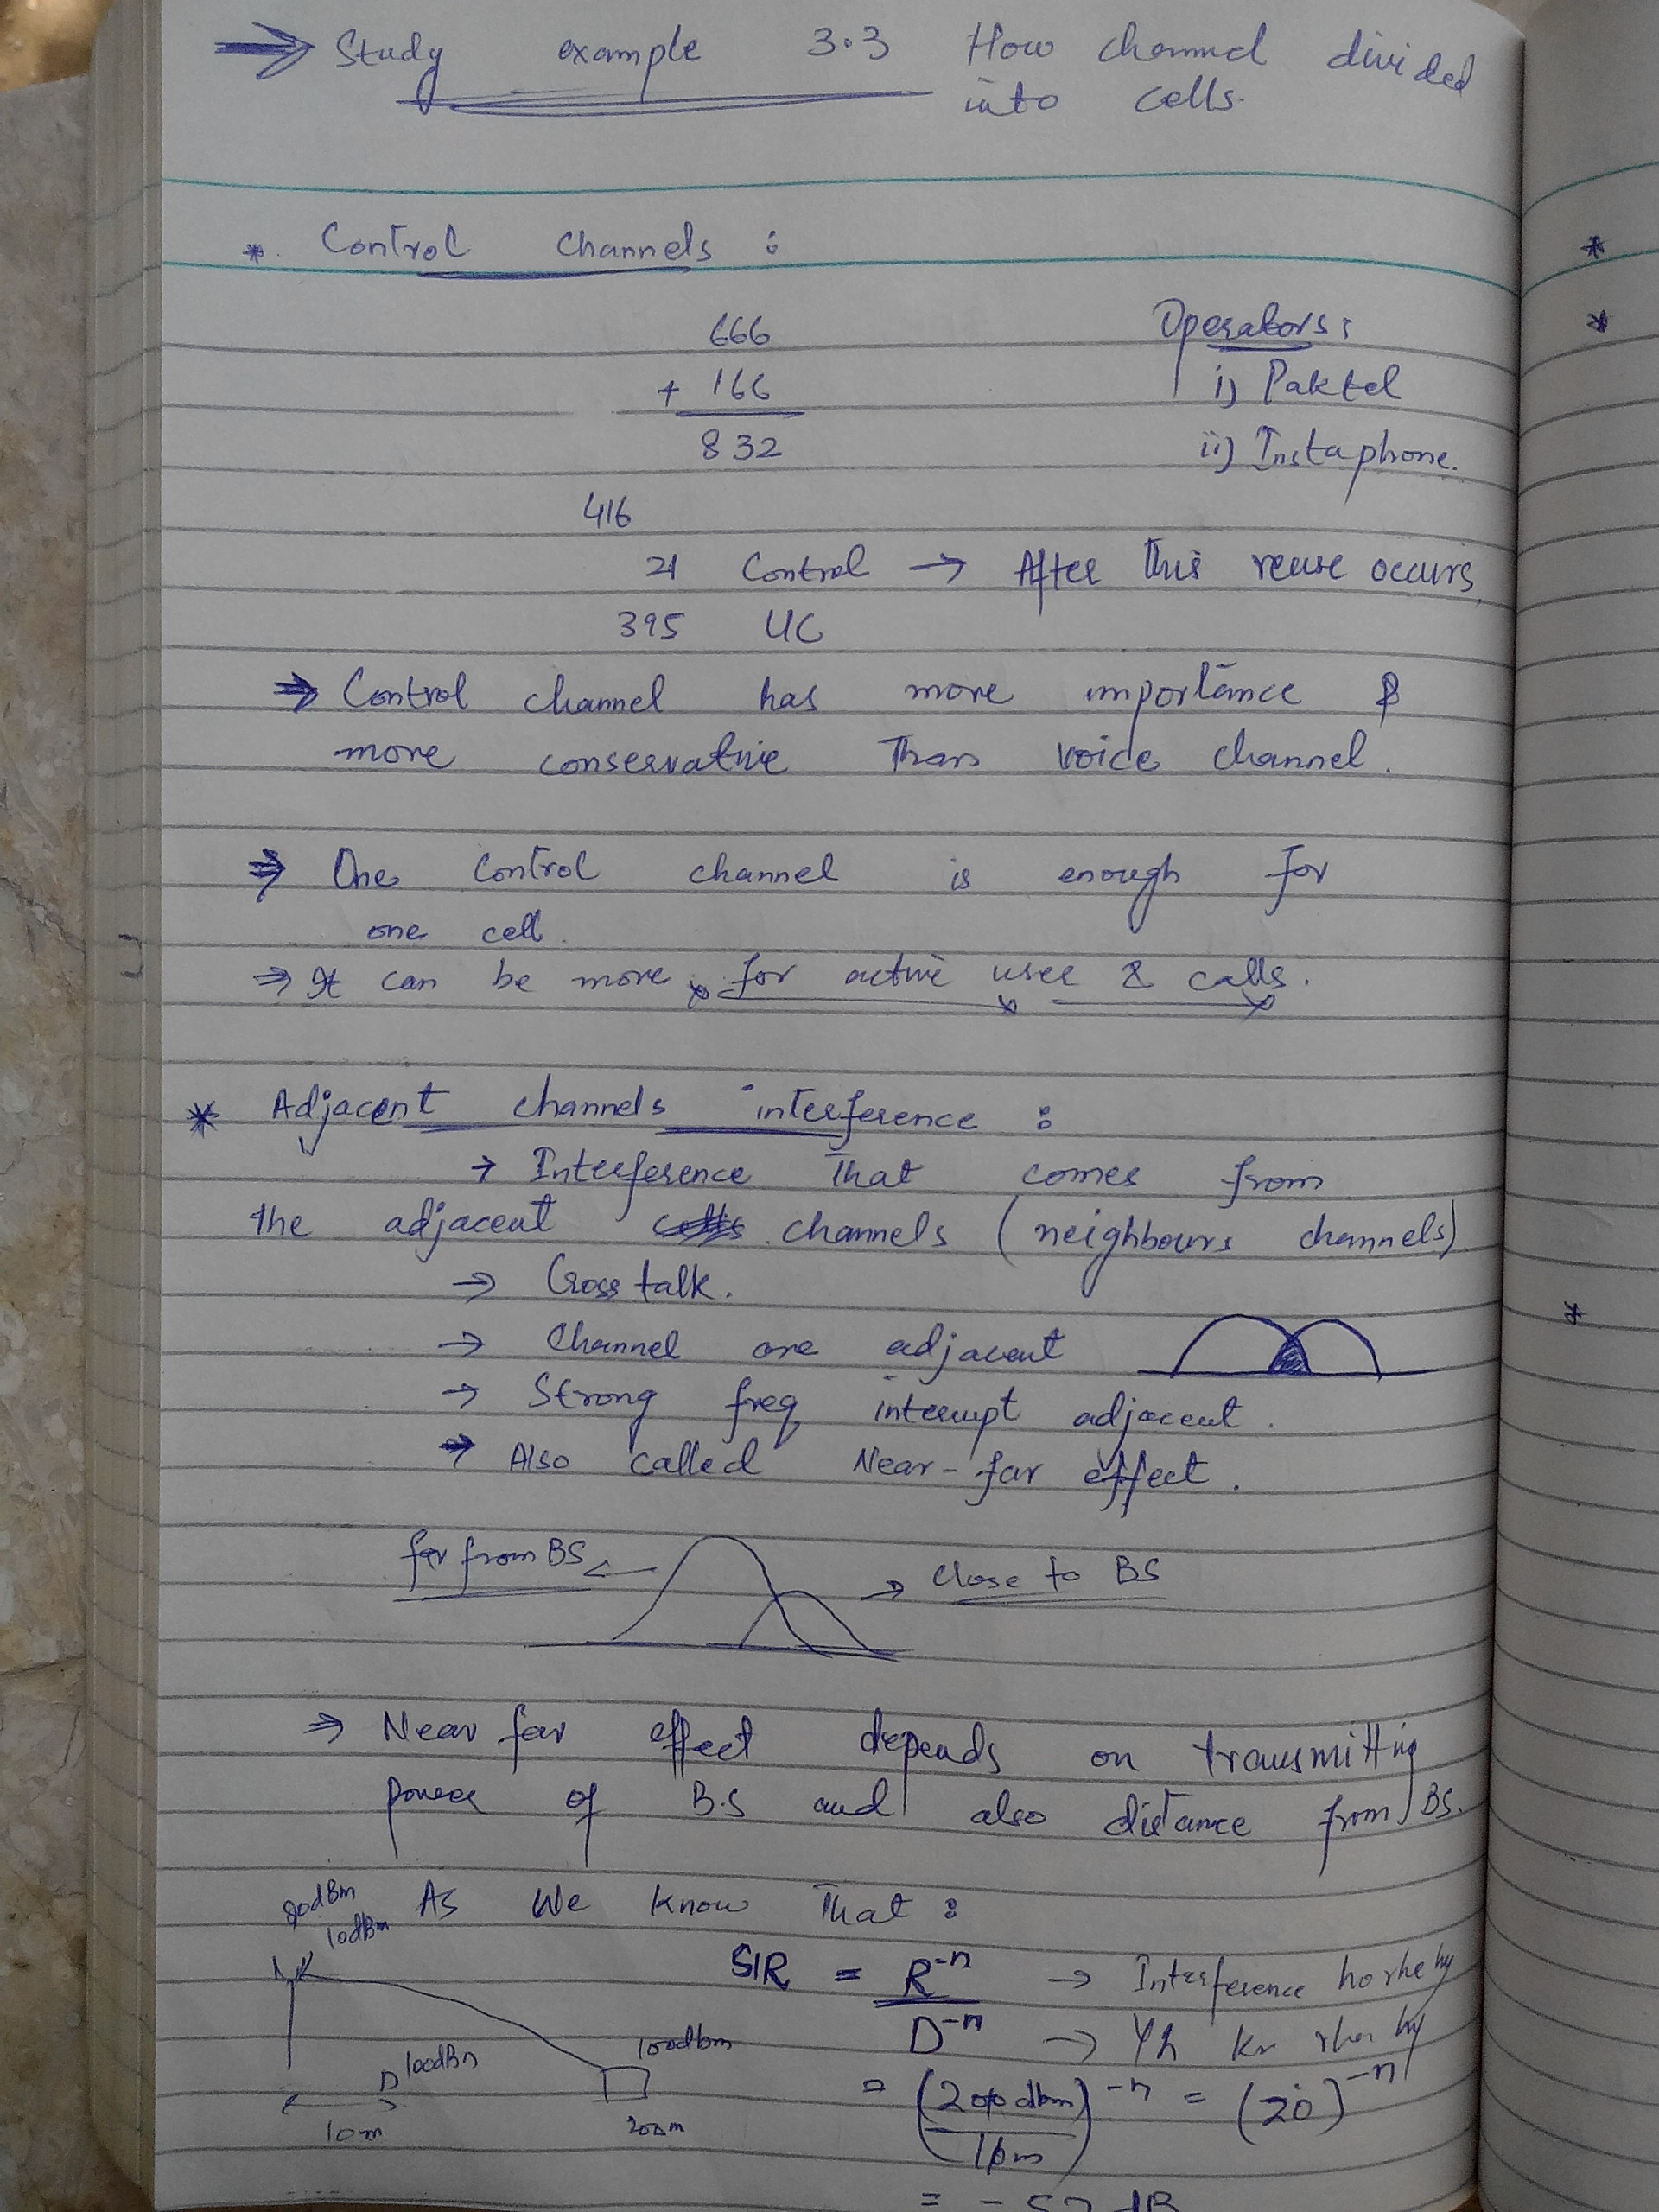 ⇒ Study example 3.3 How channel divided
into cells.
* Control channels :
666
+ 166
832
Operators :
i) Paktel
ii) Instaphone.
416
21 Control → After this reuse occurs
395 UC
⇒ Control channel has more importance &
more conservative than voice channel.
⇒ One control channel is enough for
one cell.
⇒ It can be more for active user & calls.
* Adjacent channels interference :
→ Interference that comes from
the adjacent channels (neighbours channels)
→ Cross talk.
→ Channel are adjacent
→ Strong freq interrupt adjacent.
→ Also called Near-far effect.
far from BS
→ Close to BS
⇒ Near far effect depends on transmitting
power of B.S and also distance from BS.
As We know that :
10dBm
SIR = R^-n → Interference ho rhe hy
D^-n → Yh kr rha hy
100dBm
100dbm
10m
200m
= (200dbm / 10m)^-n = (20)^-n